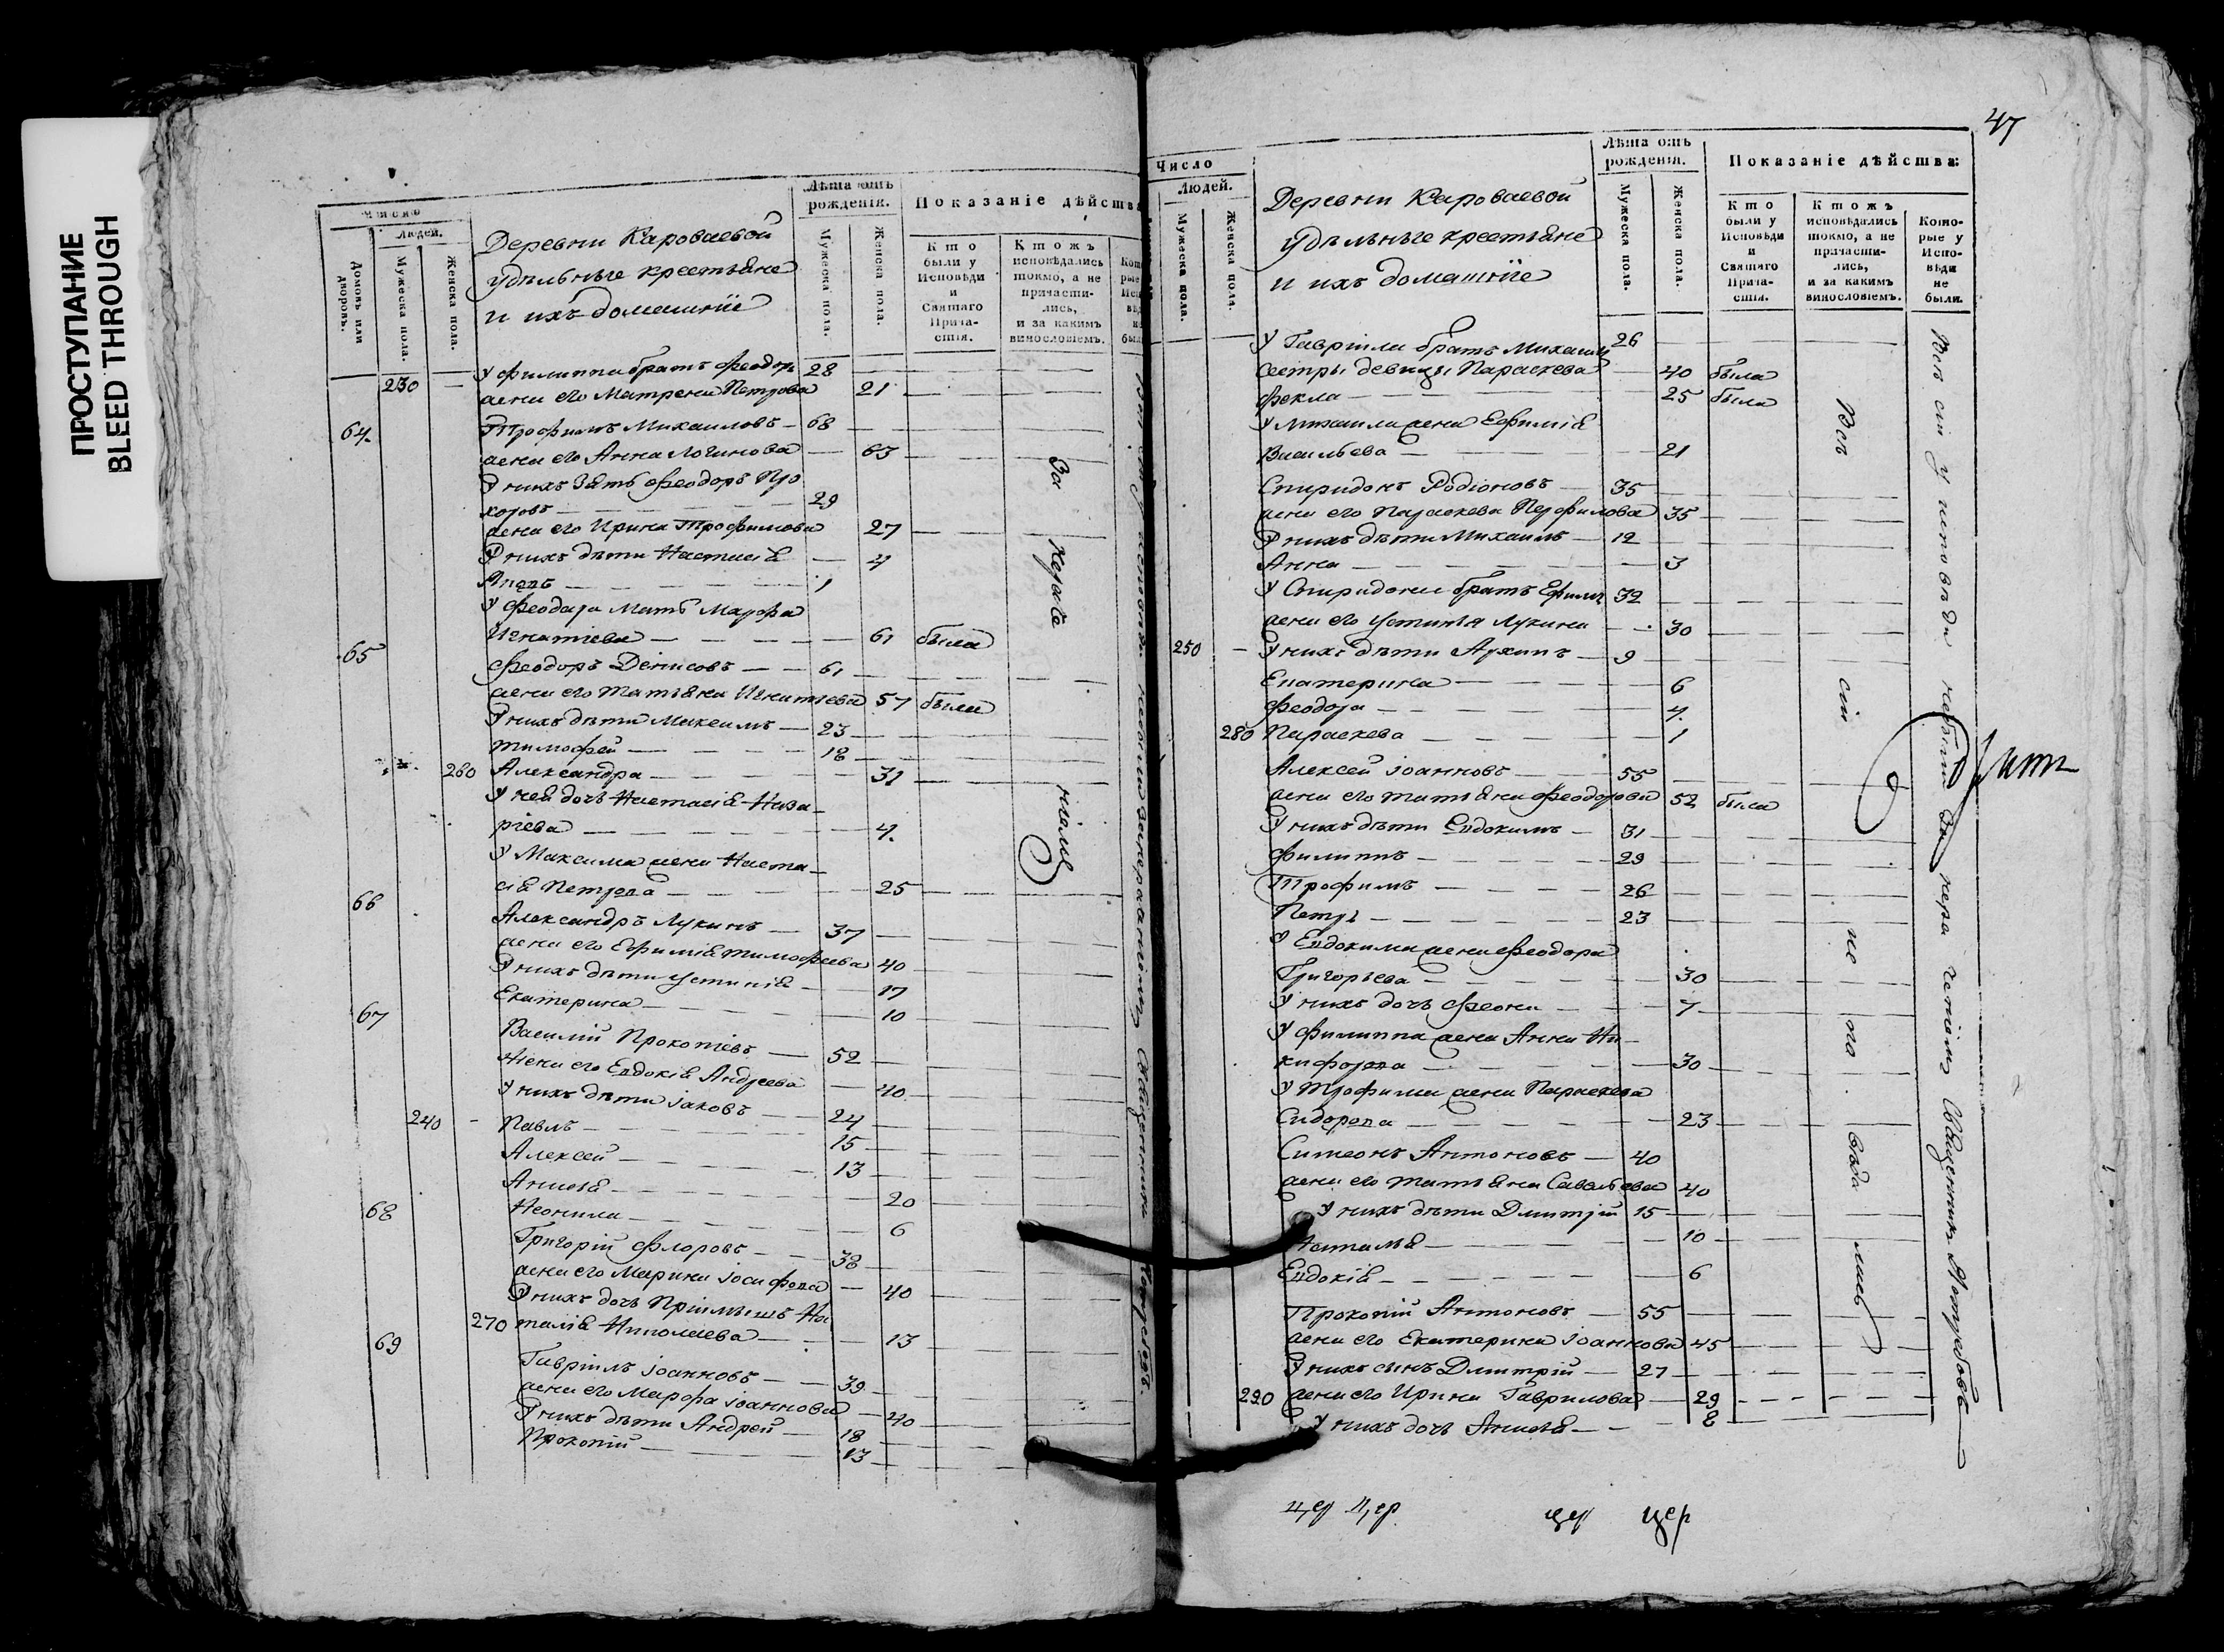 ПРОСТУПАНИЕ
BLEED THROUGH
Число
Людей.
Домовъ или дворовъ.
Мужеска пола.
Женска пола.
Деревни Кароваевой
удѣльные крестьяне
и ихъ домашніе
Лѣта отъ рожденія.
Мужеска пола.
Женска пола.
Показаніе дѣйства
Кто были у Исповѣди и Святаго Прича-стія.
Ктожъ исповѣдались токмо, а не причасти-лись, и за какимъ винословіемъ.
У филиппа братъ феодоръ 28
230 — жена его Матрена Петрова 21
64. Трофимъ Михаиловъ — 68
жена его Анна Логинова — 63
У нихъ Зять феодоръ Про
хоровъ — 29
жена его Ирина Трофимова 27
У нихъ дѣти Настасія — 4
Аппъ — 1
У феодора мать Марфа
Игнатіева — 61 была
65 феодоръ Денисовъ — 61
жена его Татьяна Игнатьева 57 была
У нихъ дѣти Максимъ — 23
Тимофей — 18
260 Александра — 31
У ней дочь Настасія Наза-
ріева — 4.
У Максима жена Наста-
сія Петрова — 25
66 Александръ Лукинъ — 37
жена его Ефимія Тимофеева 40
У нихъ дѣти Устинія — 17
Екатерина — 10
67 Василій Прокопіевъ — 52
Жена его Евдокія Андреева — 40
У нихъ дѣти Іаковъ — 24
240 — Павлъ — 15
Алексей — 13
Анисія — 20
Неонила — 6
68 Григорій Флоровъ — 38
жена его Марина Іосифова — 40
У нихъ дочь Пріимышъ На
270 талія Николаева — 13
69 Гавріилъ Іоанновъ — 39
жена его Марфа Іоаннова — 40
У нихъ дѣти Андрей — 18
Прокопій — 13
За нераченіемъ
47
Число
Людей.
Мужеска пола.
Женска пола.
Деревни Кароваевой
удѣльные крестьяне
и ихъ домашніе
Лѣта отъ рожденія.
Мужеска пола.
Женска пола.
Показаніе дѣйства:
Кто были у Исповѣди и Святаго Прича-стія.
Ктожъ исповѣдались токмо, а не причасти-лись, и за какимъ винословіемъ.
Кото-рые у Испо-вѣди не были.
У Гавріила братъ Михаилъ 26
Сестры девицы Параскева — 40 была
фекла — 25 была
У Михаила жена Ефимія
Васильева — 21
Спиридонъ Родіоновъ — 35
жена его Параскева Перфилова 35
У нихъ дѣти Михаилъ — 12
Анна — 3
У Спиридона братъ Ефимъ 32
жена его Устинья Лукина — 30
250 — У нихъ дѣти Архипъ — 9
Екатерина — 6
Феодора — 4.
280 Параскева — 1
Алексей Іоанновъ — 55
жена его татьяна Феодорова 52 была
У нихъ дѣти Евдокимъ — 31
филиппъ — 29
Трофимъ — 26
Петръ — 23
У Евдокима жена Феодора
Григорьева — 30
У нихъ дочь Феона — 7
У филиппа жена Анна Ни-
кифорова — 30
У Трофима жена Параскева
Сидорова — 23
Симеонъ Антоновъ — 40
жена его татьяна Савельева 40
У нихъ дѣти Дмитрій 15
Наталья — 10
Евдокія — 6
Прокопій Антоновъ — 55
жена его Екатерина Іоаннова 45
У нихъ сынъ Дмитрій — 27
290 жена его Ирина Гаврилова — 29
У нихъ дочь Анисія — 8
Всѣ сіи не исповѣдались
Всѣ сіи у исповѣди небыли за нераченіемъ Священникъ
цер цер цер цер